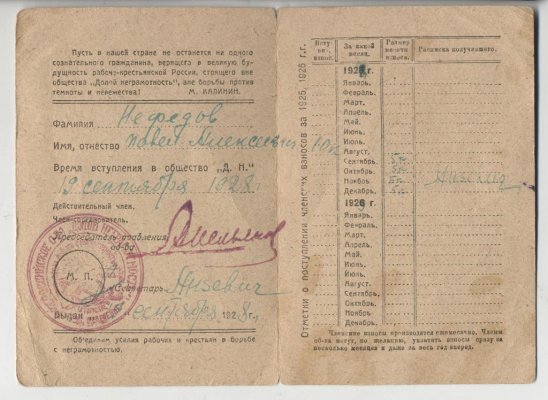 Пусть в нашей стране не останется ни одного
сознательного гражданина, верящего в великую бу-
дущность рабоче-крестьянской России, стоящего вне
общества „Долой неграмотность", вне борьбы против
темноты и невежества!
М. КАЛИНИН.
Фамилия Нефедов
Имя, отчество Павел Алексеевич
Время вступления в общество „Д. Н."
19 сентября 1928 г.
Действительный член.
Член-соревнователь.
Председатель правления
об-ва
М. П.
Секретарь
Выдан сентября 1928 г.
Об'единим усилия рабочих и крестьян в борьбе
с неграмотностью.
Отметки о поступлении членских взносов за 1925, 1926 г.г.
За какой месяц.
Размер взноса.
Расписка получившего.
Январь.
Февраль.
Март.
Апрель.
Май.
Июнь.
Июль.
Август.
Сентябрь
Октябрь
Ноябрь
Декабрь
1926 г.
Январь.
Февраль.
Март.
Апрель.
Май.
Июнь.
Июль.
Август.
Сентябрь.
Октябрь.
Ноябрь.
Декабрь
Членские взносы производятся ежемесячно. Члены
об-ва могут, по желанию, уплатить взносы сразу за
несколько месяцев и даже за весь год вперед.